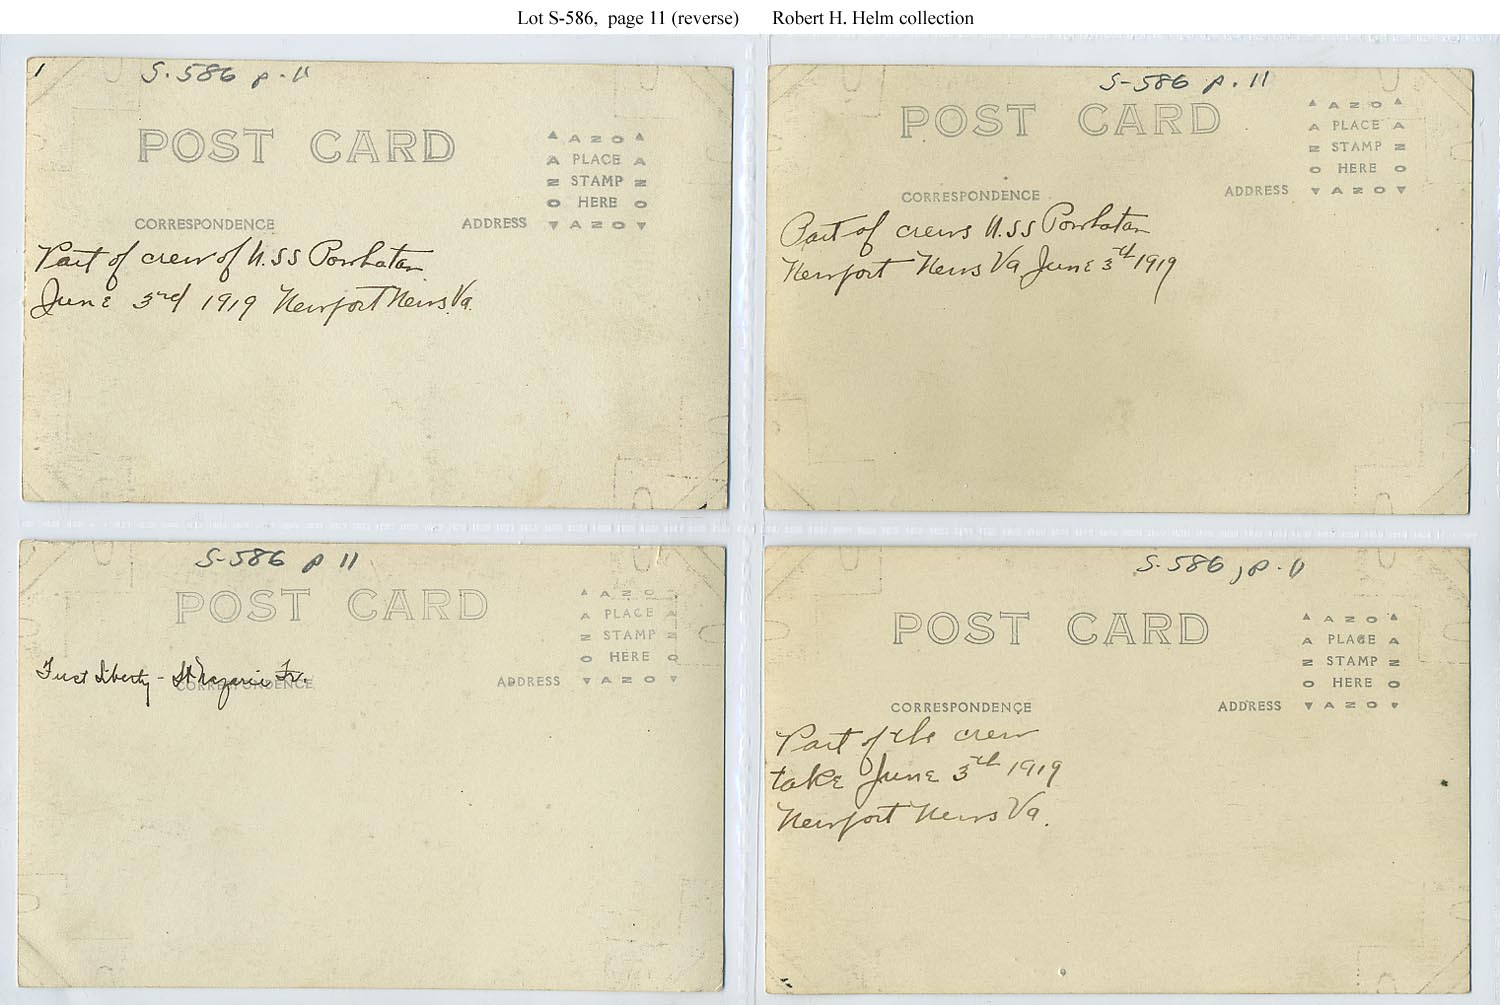 Lot S-586, page 11 (reverse) Robert H. Helm collection
1
S-586 p. 11
POST CARD
A Z O
A PLACE A
Z STAMP Z
O HERE O
A Z O
CORRESPONDENCE ADDRESS
Part of crew of U.S.S Powhatan
June 3rd 1919 Newport News, Va.
S-586 p. 11
POST CARD
A Z O
A PLACE A
Z STAMP Z
O HERE O
A Z O
CORRESPONDENCE ADDRESS
Part of crews U.S.S Powhatan
Newport News Va June 3th 1919
S-586 p 11
POST CARD
A Z O
A PLACE A
Z STAMP Z
O HERE O
A Z O
CORRESPONDENCE ADDRESS
First Liberty - St Nazarie Fr.
S-586, p. 11
POST CARD
A Z O
A PLACE A
Z STAMP Z
O HERE O
A Z O
CORRESPONDENCE ADDRESS
Part of the crew
take June 3th 1919
Newport News Va.